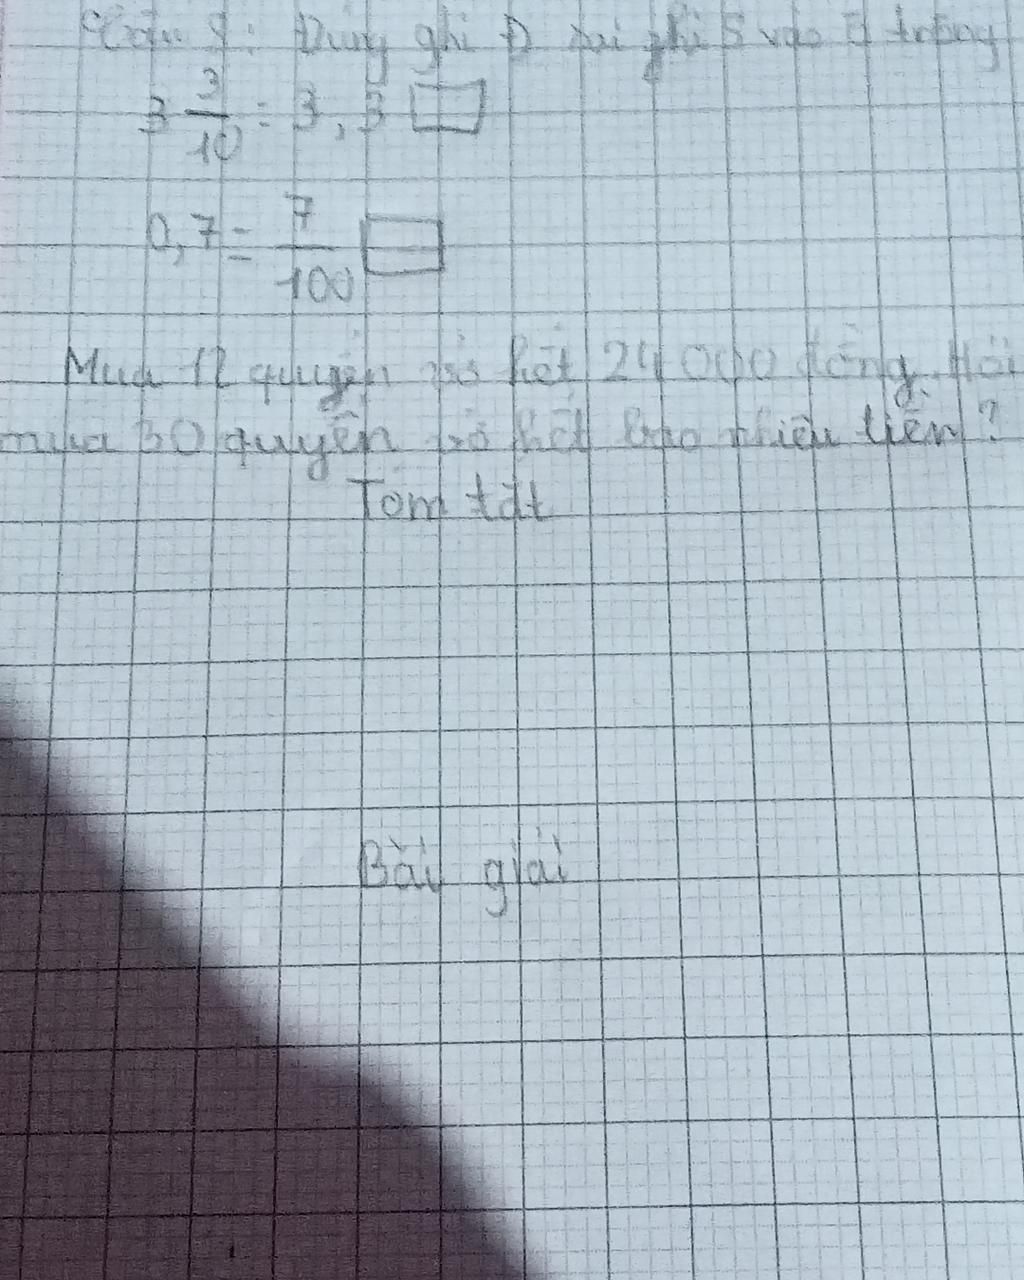 Câu 9: Đúng ghi Đ sai ghi S vào ô trống
3 3/10 = 3,3
0,7 = 7/100
Mua 12 quyển vở hết 24 000 đồng. Hỏi
mua 30 quyển vở hết bao nhiêu tiền?
Tóm tắt
Bài giải